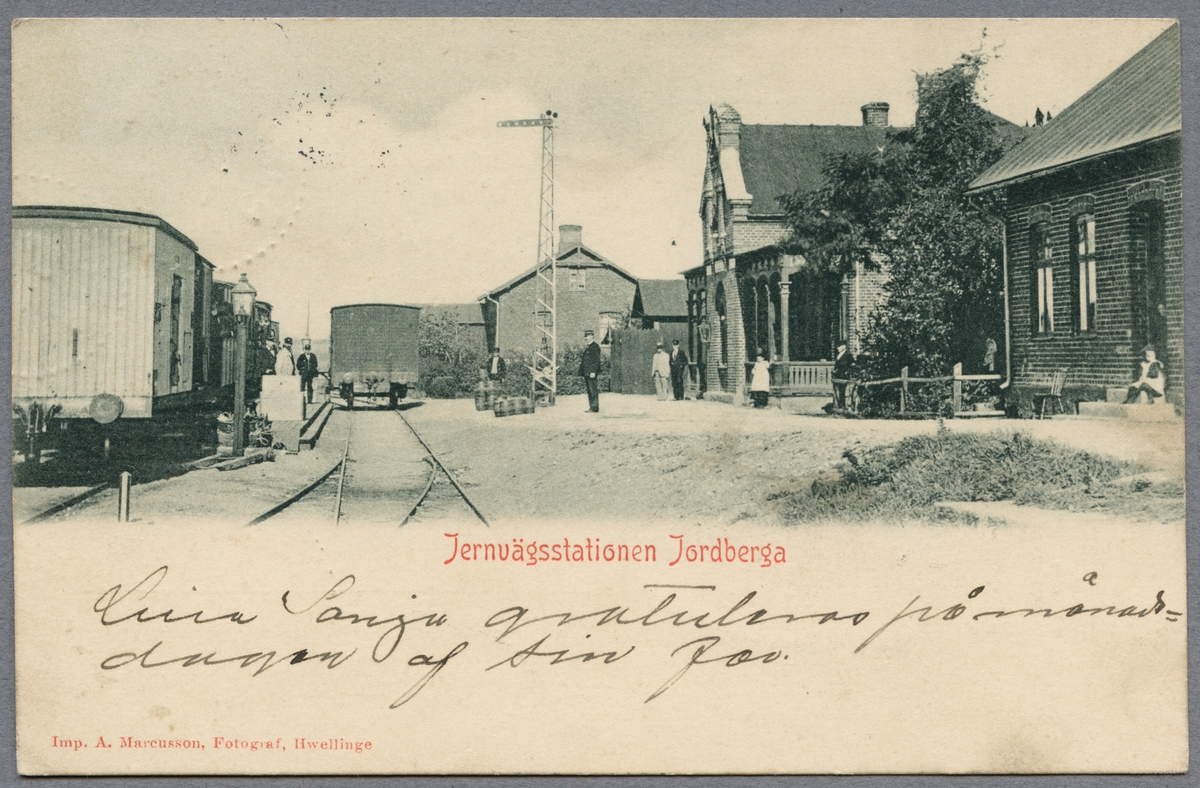 Jernvägsstationen Jordberga
Sanja gratuleras på månads=
dagen af sin far.
Imp. A. Marcusson, Fotograf, Hwellinge